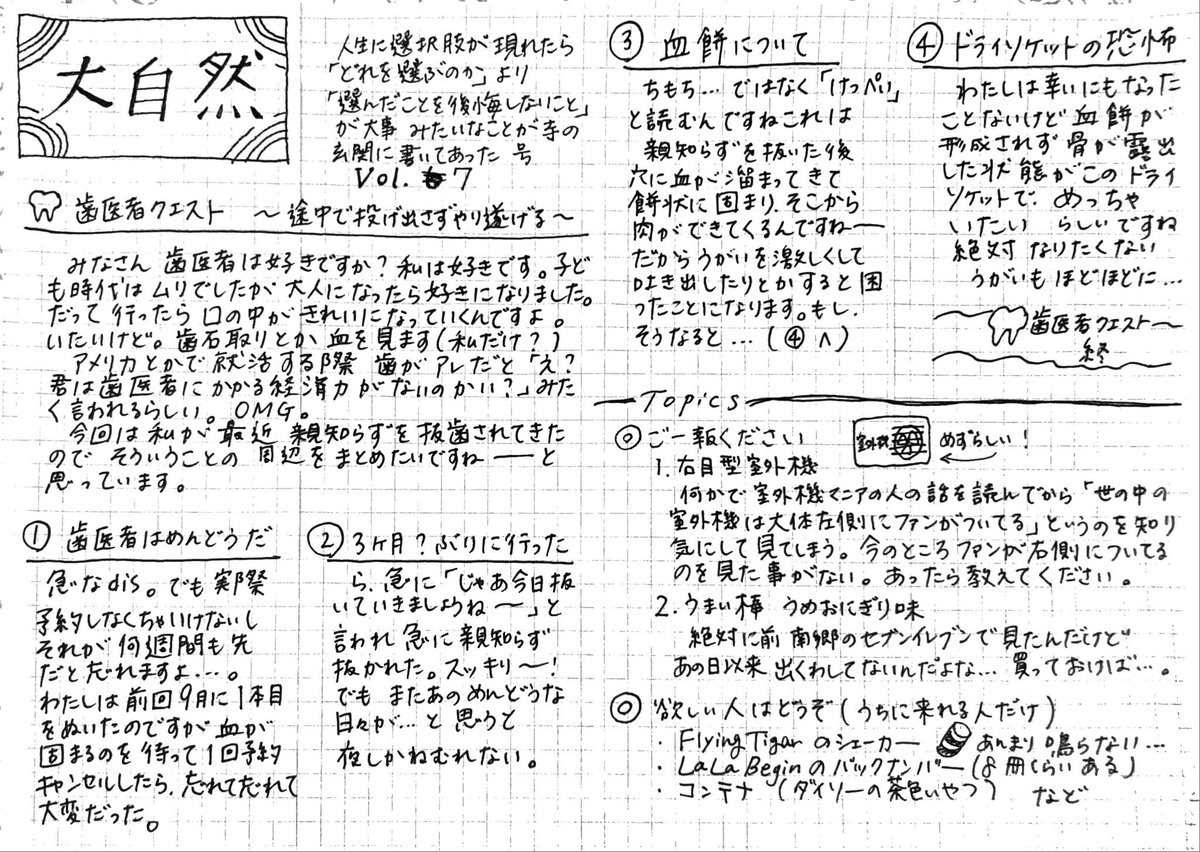 大自然
人生に選択肢が現れたら
「どれを選ぶのか」より
「選んだことを後悔しないこと」
が大事 みたいなことが寺の
玄関に書いてあった 号
Vol. 7
歯医者クエスト 〜途中で投げ出さずやり遂げる〜
みなさん 歯医者は好きですか?私は好きです。子ど
も時代はムリでしたが大人になったら好きになりました。
だって行ったら口の中がきれいになっていくんですよ。
いたいけど。歯石取りとか血を見ます(私だけ?)
アメリカとかで就活する際 歯がアレだと「え?
君は歯医者にかかる経済力がないのかい?」みた
く言われるらしい。OMG。
今回は私が最近 親知らずを抜歯されてきた
ので そういうことの周辺をまとめたいですね――と
思っています。
① 歯医者はめんどうだ
急なdis。でも実際
予約しなくちゃいけないし
それが何週間も先
だと忘れますよ…。
わたしは前回9月に1本目
をぬいたのですが血が
固まるのを待って1回予約
キャンセルしたら、忘れて忘れて
大変だった。
② 3ヶ月?ぶりに行った
ら、急に「じゃあ今日抜
いていきましょうね〜」と
言われ急に親知らず
抜かれた。スッキリ〜!
でも またあのめんどうな
日々が…と思うと
夜しかねむれない。
③ 血餅について
ちもち…ではなく「けっぺい」
と読むんですねこれは
親知らずを抜いた後
穴に血が溜まってきて
餅状に固まり、そこから
肉ができてくるんですね――
だからうがいを激しくして
吐き出したりとかすると困
ったことになります。もし、
そうなると…(④へ)
④ ドライソケットの恐怖
わたしは幸いにもなった
ことないけど血餅が
形成されず骨が露出
した状態がこのドライ
ソケットで、めっちゃ
いたい らしいですね
絶対なりたくない
うがいもほどほどに…
歯医者クエスト〜
終
Topics
◎ ご一報ください
室外機
めずらしい!
1. 右目型室外機
何かで室外機マニアの人の話を読んでから「世の中の
室外機は大体左側にファンがついてる」というのを知り
気にして見てしまう。今のところファンが右側についてる
のを見た事がない。あったら教えてください。
2. うまい棒 うめおにぎり味
絶対に前 南郷のセブンイレブンで見たんだけど
あの日以来 出くわしてないんだよな… 買っておけば…。
◎ 欲しい人はどうぞ(うちに来れる人だけ)
・Flying Tigarのシェーカー あんまり鳴らない…
・LaLa Beginのバックナンバー(8冊くらいある)
・コンテナ (ダイソーの茶色いやつ) など